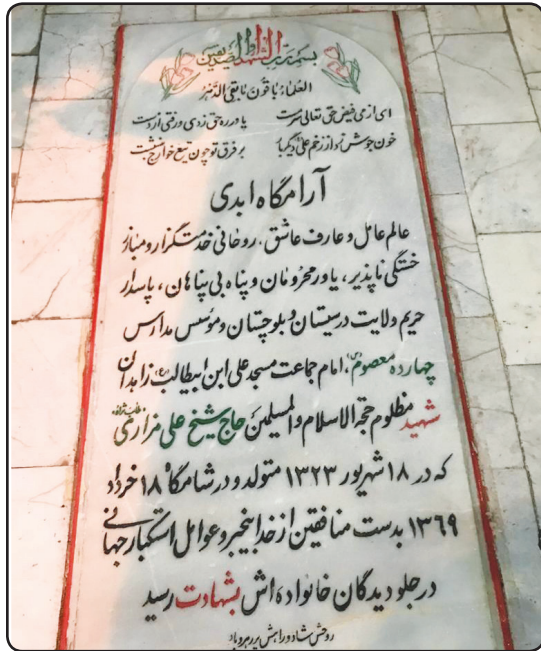 بسم رب الشهداء والصدیقین
العلماء باقون ما بقی الدهر
ای از می فیض حق تعالی سرمست یا در ره حق زدی و رفتی از دست
خون جوش زد از زخم علی دیگر بار بر فرق تو چون تیغ خوارج بنشست
آرامگاه ابدی
عالم عامل و عارف عاشق، روحانی خدمتگزار و مبارز
خستگی ناپذیر، یاور محرومان و پناه بی پناهان، پاسدار
حریم ولایت در سیستان و بلوچستان و موسس مدارس
چهارده معصوم (ع)، امام جماعت مسجد علی ابن ابیطالب (ع) زاهدان
شهید مظلوم حجة الاسلام والمسلمین حاج شیخ علی مزاری
که در ۱۸ شهریور ۱۳۲۳ متولد و در شامگاه ۱۸ خرداد
۱۳۶۹ بدست منافقین از خدا بیخبر و عوامل استکبار جهانی
در جلو دیدگان خانواده اش بشهادت رسید
روحش شاد و راهش پر رهرو باد